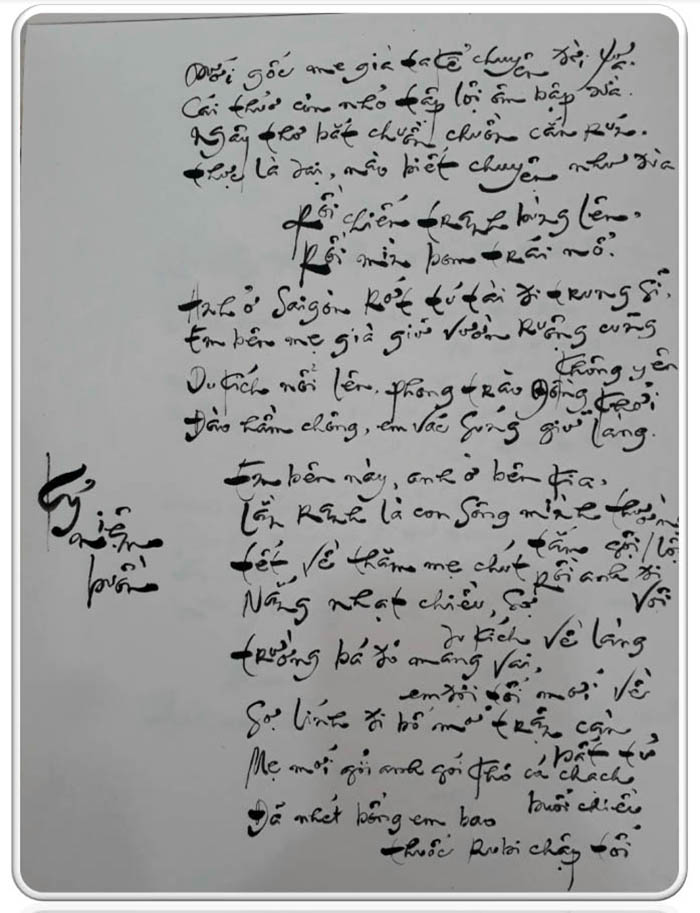 Dưới gốc me già ta kể chuyện đời xưa.
Cái thuở còn nhỏ tập lội ôm bập dừa.
Ngây thơ bắt chuồn chuồn cắn rún.
thực là dại, nào biết chuyện như đùa
Rồi chiến tranh bùng lên,
Rồi mìn bom trái nổ.
Anh ở Saigòn rớt tú tài đi trung sĩ,
Em bên mẹ già giữ vườn ruộng cũng
không yên
Du kích nổi lên. phong trào Đồng
khởi
Đào hầm chông, em vác súng giữ làng.
Kỷ niệm buồn
Em bên này, anh ở bên kia,
Lằn ranh là con sông mình thường
tắm gội/lội
tết về thăm mẹ chút rồi anh đi
vội
Nắng nhạt chiều, sợ
du kích về làng
trường bá đỏ mang vai,
em đợi tối mới về
Sợ lính đi bố mở trận càn
bất tử
Mẹ mới gởi anh gói khô cá chạch
buổi chiều
Đã nhét bồng em bao
thuốc Rubi chập tối